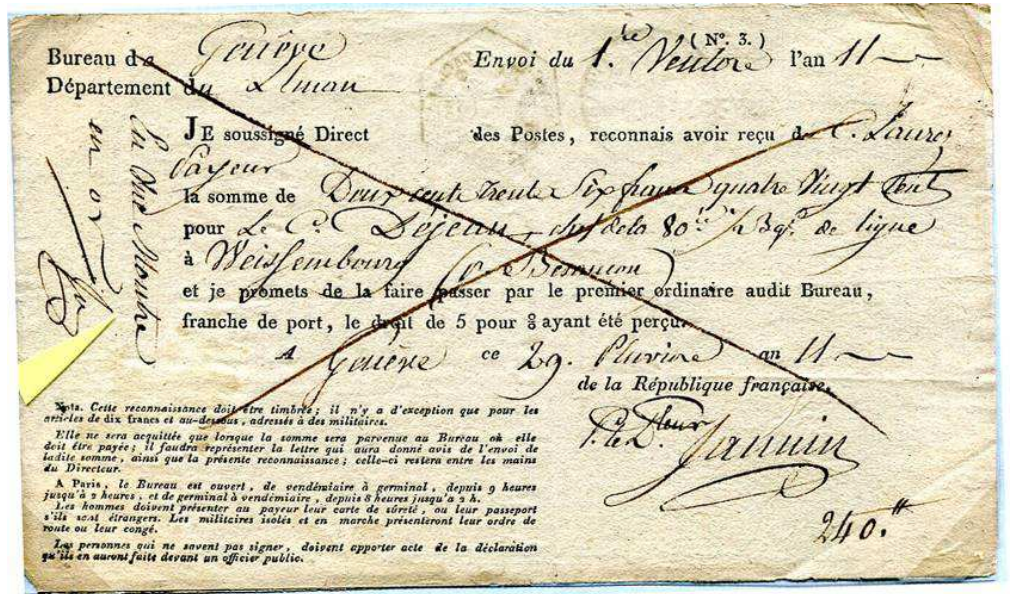 (N.º 3.)
Bureau de Genève Envoi du 1.re Ventose l'an 11
Département du Léman
JE soussigné Direct des Postes, reconnais avoir reçu d C.
Payeur
la somme de Deux cent trente Six francs quatre Vingt Cent
pour Le C.en Dejean, chef de la 80.e 1/2 Bg.e de ligne
à Weissembourg Besancon
et je promets de la faire passer par le premier ordinaire audit Bureau,
franche de port, le droit de 5 pour % ayant été perçu.
A Genève ce 29. Pluviose an 11
de la République française.
P. le D.teur
Jannin
240.#
Un Montre
en or
Nota. Cette reconnaissance doit être timbrée ; il n'y a d'exception que pour les
articles de dix francs et au-dessous, adressés à des militaires.
Elle ne sera acquittée que lorsque la somme sera parvenue au Bureau où elle
doit être payée ; il faudra représenter la lettre qui aura donné avis de l'envoi de
ladite somme, ainsi que la présente reconnaissance ; celle-ci restera entre les mains
du Directeur.
A Paris, le Bureau est ouvert, de vendémiaire à germinal, depuis 9 heures
jusqu'à 2 heures, et de germinal à vendémiaire, depuis 8 heures jusqu'a 2 h.
Les hommes doivent présenter au payeur leur carte de sûreté, ou leur passeport
s'ils sont étrangers. Les militaires isolés et en marche présenteront leur ordre de
route ou leur congé.
Les personnes qui ne savent pas signer, doivent apporter acte de la déclaration
qu'ils en auront faite devant un officier public.